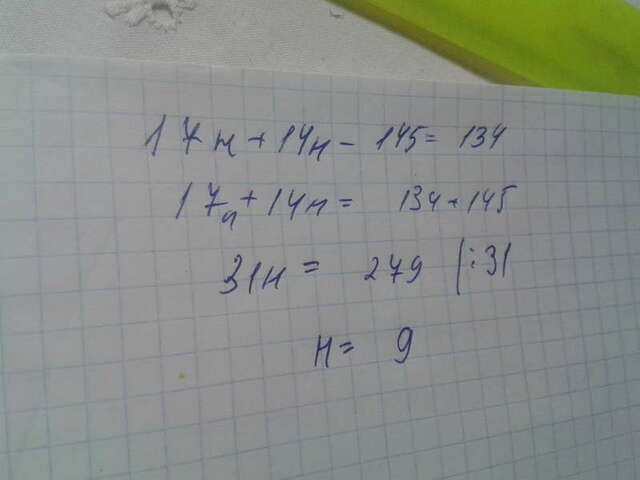 17н+14н-145=134
17н+14н=134+145
31н=279 |:31
н=9